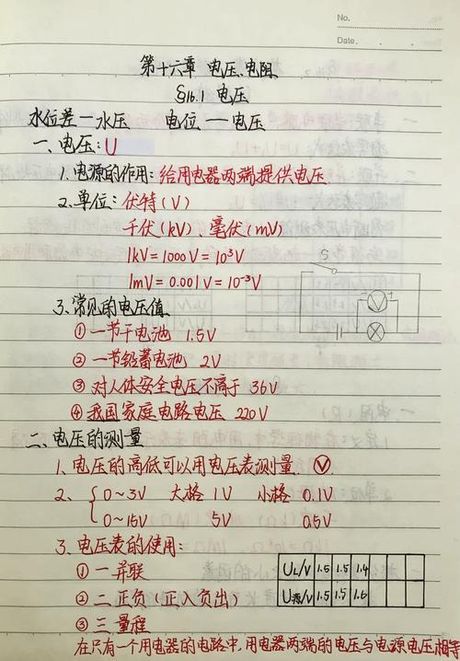 No.
Date.
第十六章 电压、电阻
§16.1 电压
水位差—水压 电位—电压
一、电压:U
1.电源的作用:给用电器两端提供电压
2.单位:伏特(V)
千伏(kV)、毫伏(mV)
1kV=1000V=10³V
1mV=0.001V=10⁻³V
S
V
3.常见的电压值
①一节干电池 1.5V
②一节铅蓄电池 2V
③对人体安全电压不高于36V
④我国家庭电路电压 220V
二、电压的测量
1、电压的高低可以用电压表测量 V
2、{0~3V 大格 1V 小格 0.1V
0~15V 5V 0.5V
3、电压表的使用:
①一并联
②二正负(正入负出)
③三量程
UL/V 1.5 1.5 1.4
U源/V 1.5 1.5 1.6
在只有一个用电器的电路中,用电器两端的电压与电源电压相等